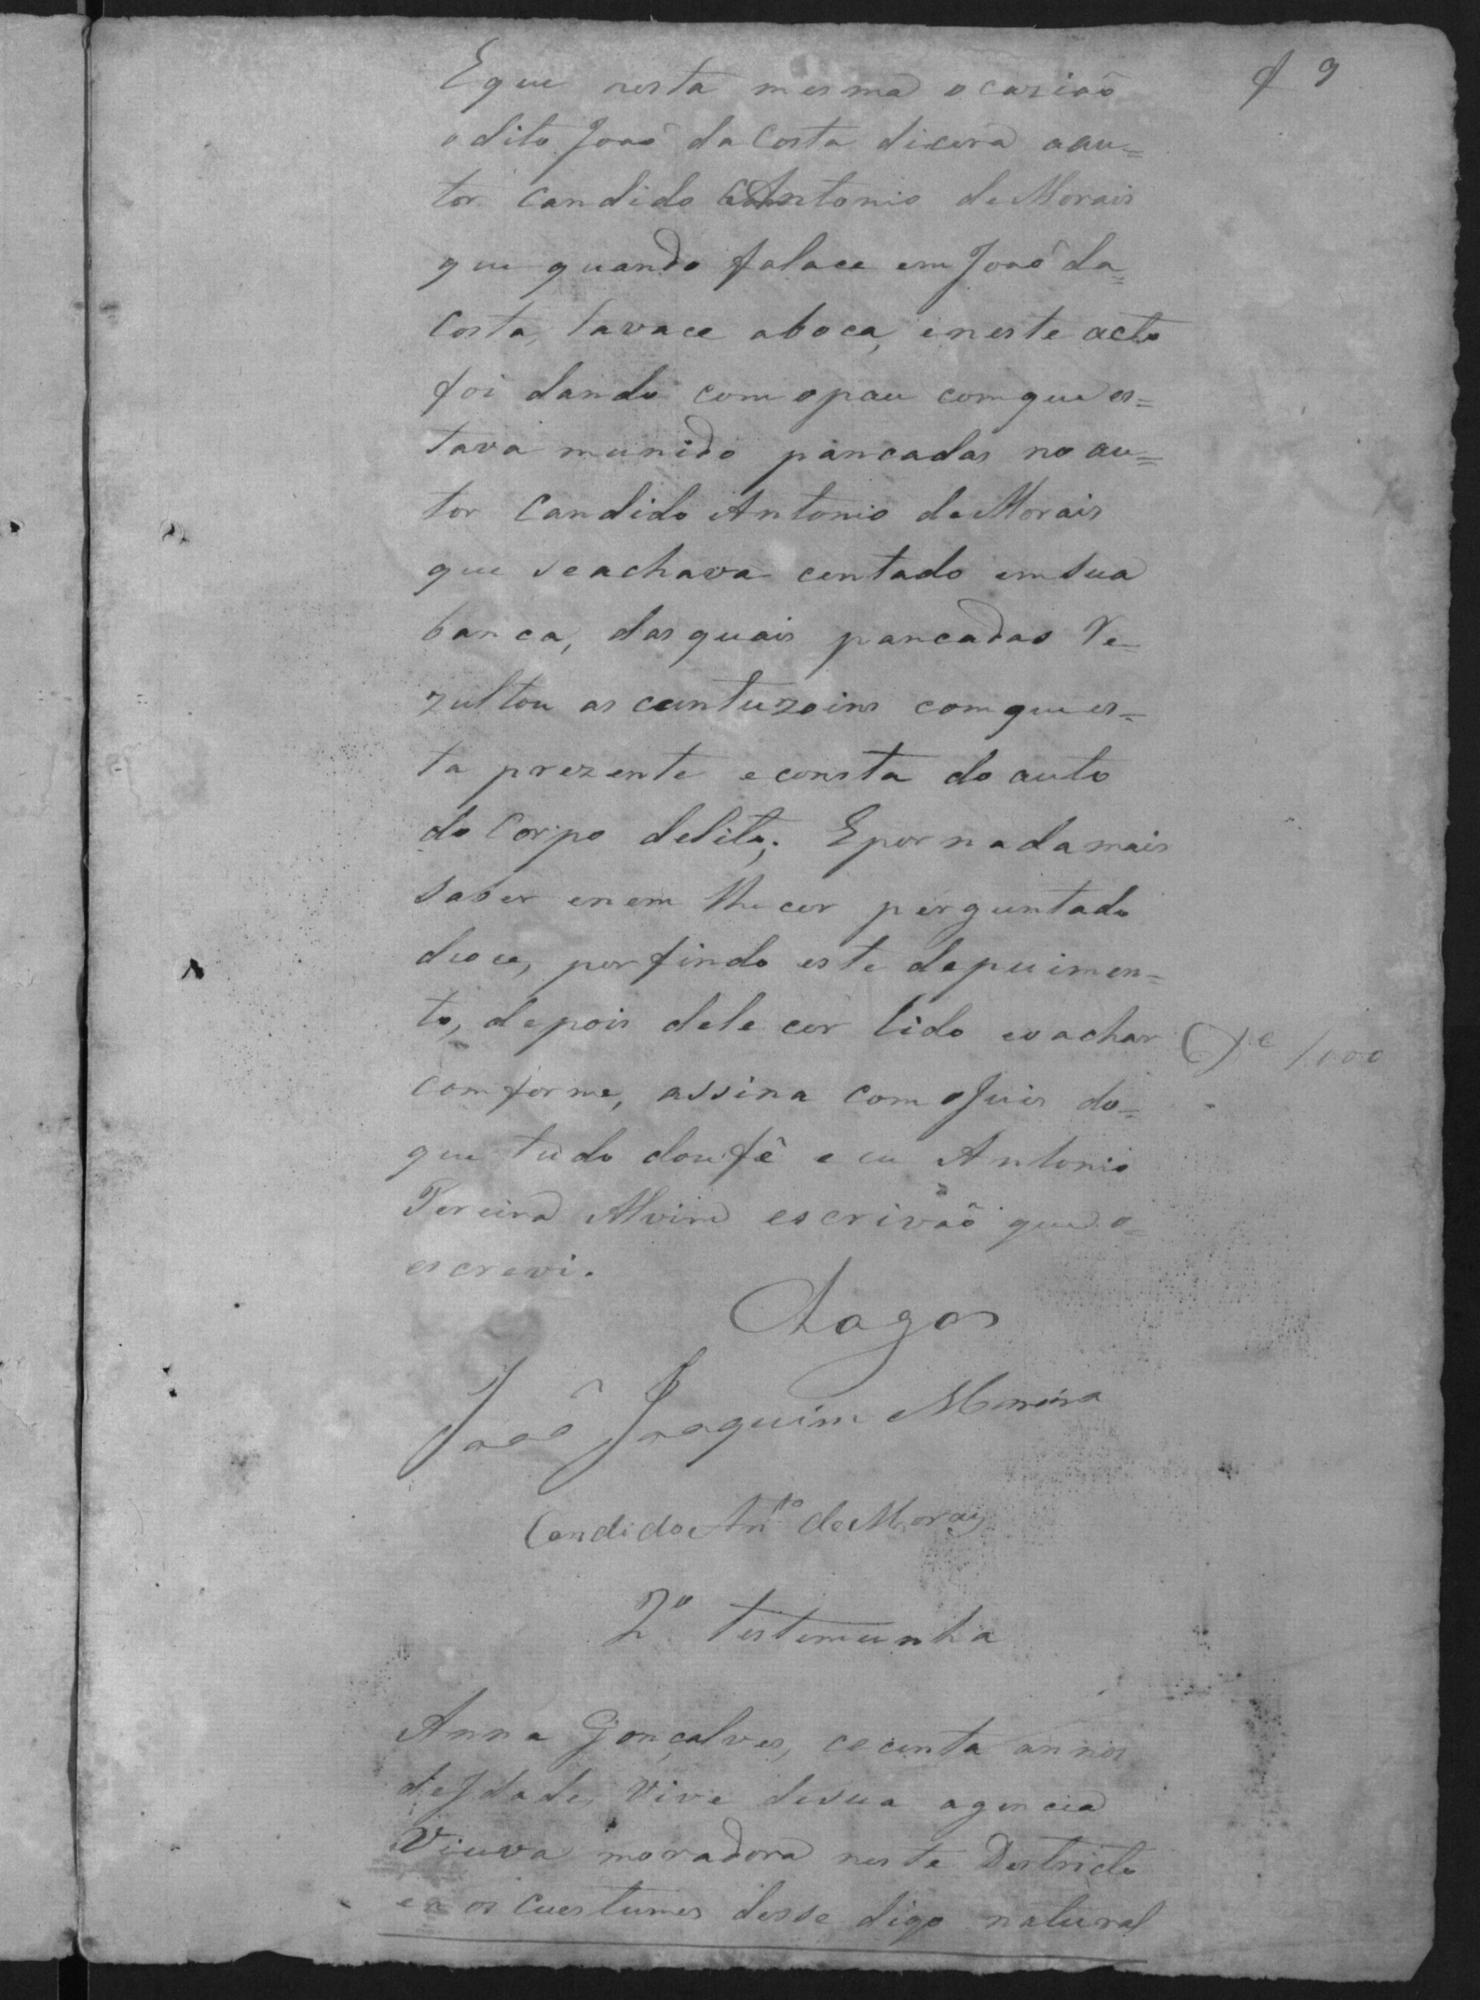 f 9
E que nesta mesma ocazião
o dito João da Costa dicera aau=
tor Candido Antonio de Morais
que quando falace em João da=
Costa, lavace aboca, eneste acto
foi dando com opau comque es=
tava munido pancadas no au=
tor Candido Antonio de Morais
que seachava centado em sua
banca, dasquais pancadas Re=
zultou as contuzoins comque es=
ta prezente econsta do auto
do Corpo delito; Epor nada mais
saber enem lhe cer perguntado
dice, porfindo este depuimen=
to, depois dele cer lido eoachar
comforme, assina com oJuis do=
que tudo doufê e eu Antonio
Pereira Alvim escrivão que o=
escrevi.
1000
Chagas
João Joaquim Moreira
Candido Anto de Morais
2a testemunha
Anna Gonçalves, cecenta annos
deIdade, Vive desua agencia
Viuva moradora neste Destricto
e aos Cuestumes desse digo natural